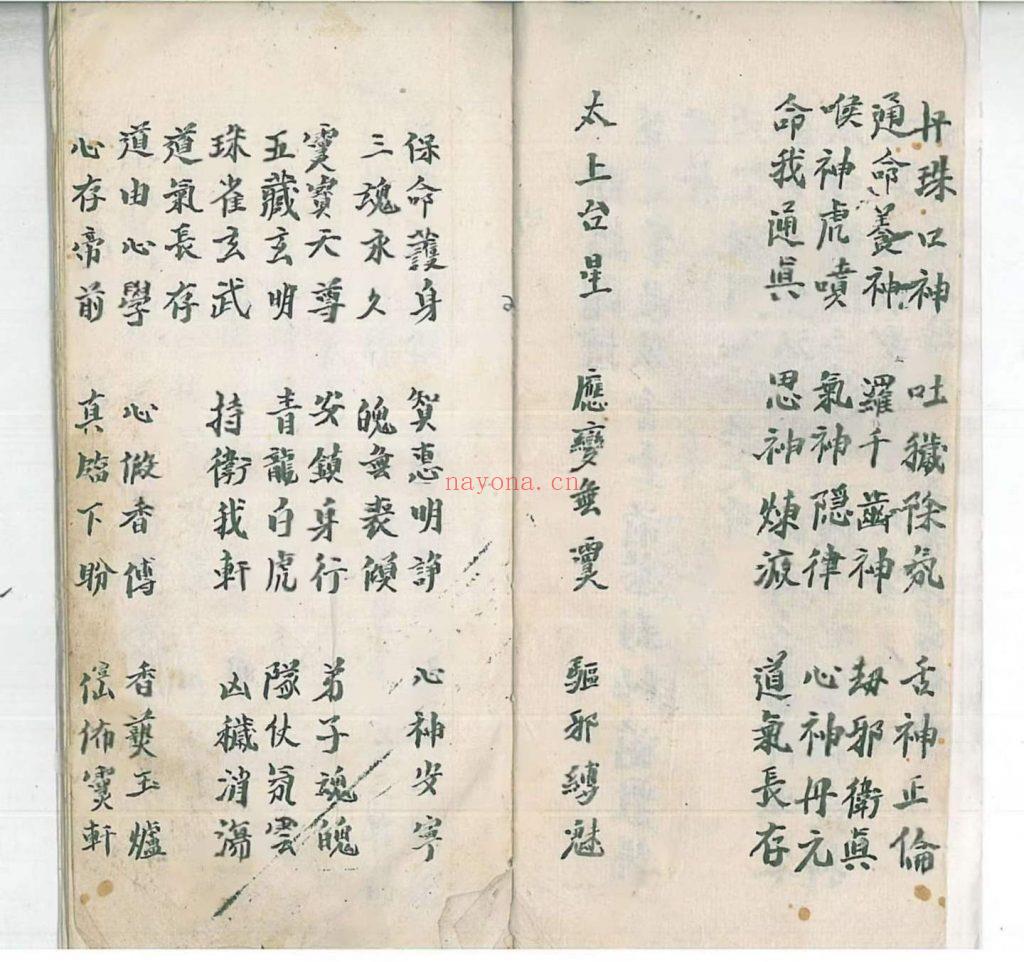 丹珠口神 吐穢除氛 舌神正倫
通命養神 羅千齒神 劫邪衛真
喉神虎噴 氣神隱律 心神丹元
命我通真 思神煉液 道氣長存
太上台星 應變無 驅邪縛魅
保命護身 智惠明 心神安寧
三魂永久 魄無喪傾
天尊 安鎮身行 弟子魂魄
五藏玄明 青龍白虎 隊仗氛雲
珠雀玄武 持衛我軒 凶穢消蕩
道氣長存
道由心學 心假香傳 香爇玉爐
心存帝前 真臨下盼 軒
nayona.cn